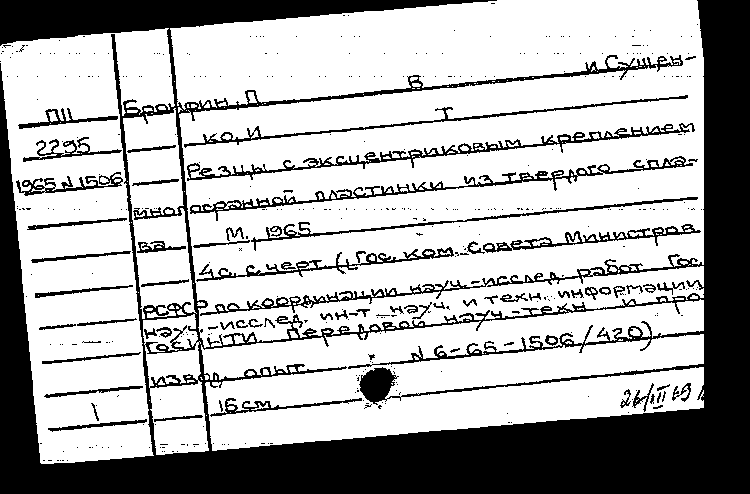 ПII Бронфин, П В и Сущен-
2295 ко, И Т
1965 N 1506 Резцы с эксцентриковым креплением
многогранной пластинки из твердого спла-
ва. М., 1965
4 с. с черт. (Гос. ком. Совета Министров
РСФСР по координации науч.-исслед. работ Гос
науч.-исслед. ин-т науч. и техн. информации
ГОСИНТИ Передовой науч.-техн и про
извод. опыт. N 6-65-1506/420).
1 16 см.
26/III 69